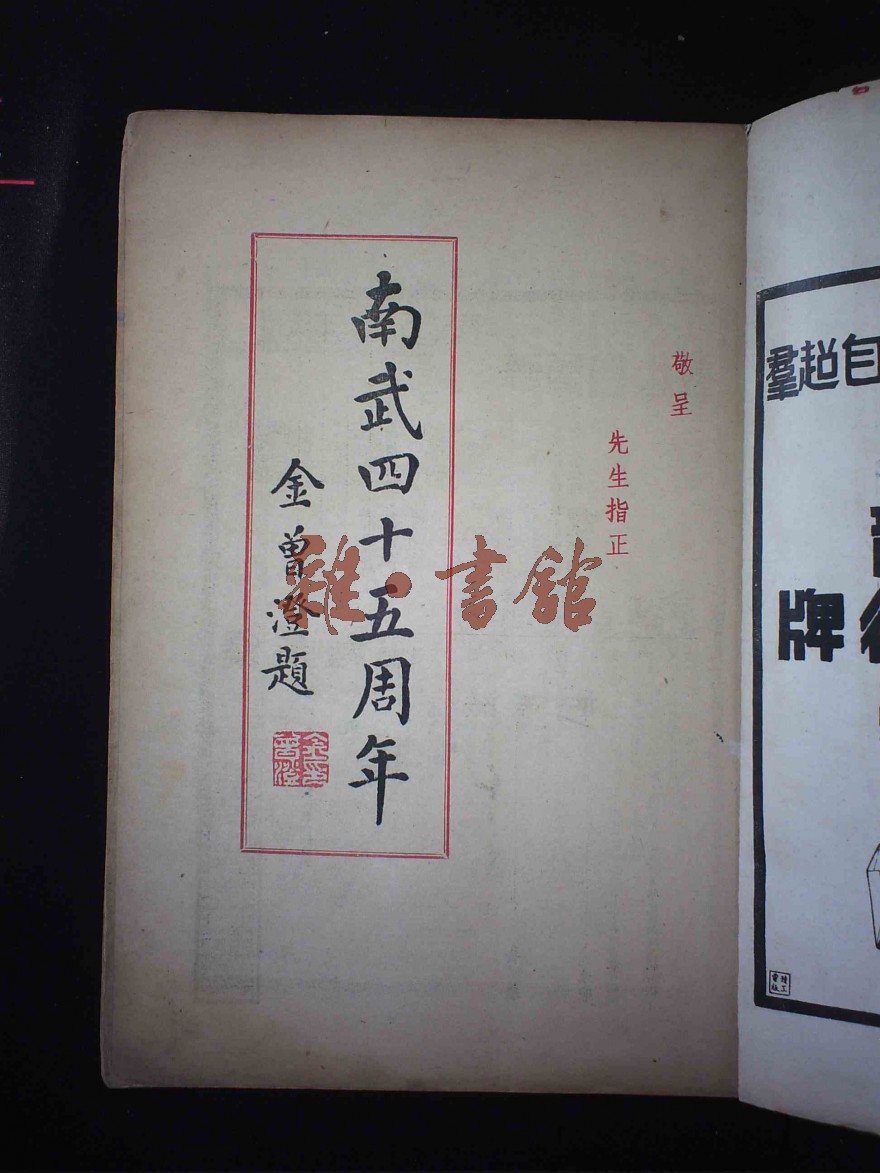 敬呈
先生指正
南武四十五周年
金曾澄題
金曾澄印
雜·書館
自趙羣
牌